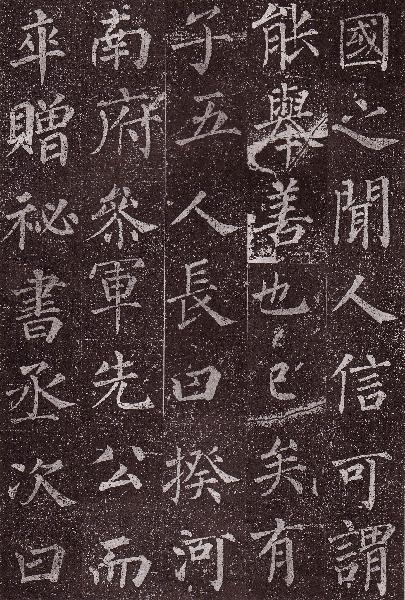 國之聞人信可謂
能舉善也已矣有
子五人長曰揆河
南府叅軍先公而
卒贈祕書丞次曰